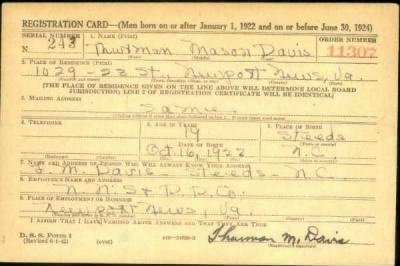 REGISTRATION CARD—(Men born on or after January 1, 1922 and on or before June 30, 1924)
SERIAL NUMBER 1. NAME (Print) ORDER NUMBER
248 Thurman Mason Davis 11302
(First) (Middle) (Last)
2. PLACE OF RESIDENCE (Print)
1029 - 22 St., Newport News, Va.
(THE PLACE OF RESIDENCE GIVEN ON THE LINE ABOVE WILL DETERMINE LOCAL BOARD
JURISDICTION; LINE 2 OF REGISTRATION CERTIFICATE WILL BE IDENTICAL)
3. MAILING ADDRESS
Same
4. TELEPHONE 5. AGE IN YEARS 6. PLACE OF BIRTH
19 Steeds
DATE OF BIRTH
Oct. 16, 1922 N.C.
7. NAME AND ADDRESS OF PERSON WHO WILL ALWAYS KNOW YOUR ADDRESS
M. Davis Steeds - N.C.
8. EMPLOYER'S NAME AND ADDRESS
N. N. S. & D. D. Co.
9. PLACE OF EMPLOYMENT OR BUSINESS
Newport News, Va.
I AFFIRM THAT I HAVE VERIFIED ABOVE ANSWERS AND THAT THEY ARE TRUE
D. S. S. Form 1
(Revised 6-1-42) (over)
Thurman M. Davis
(Registrant's signature)